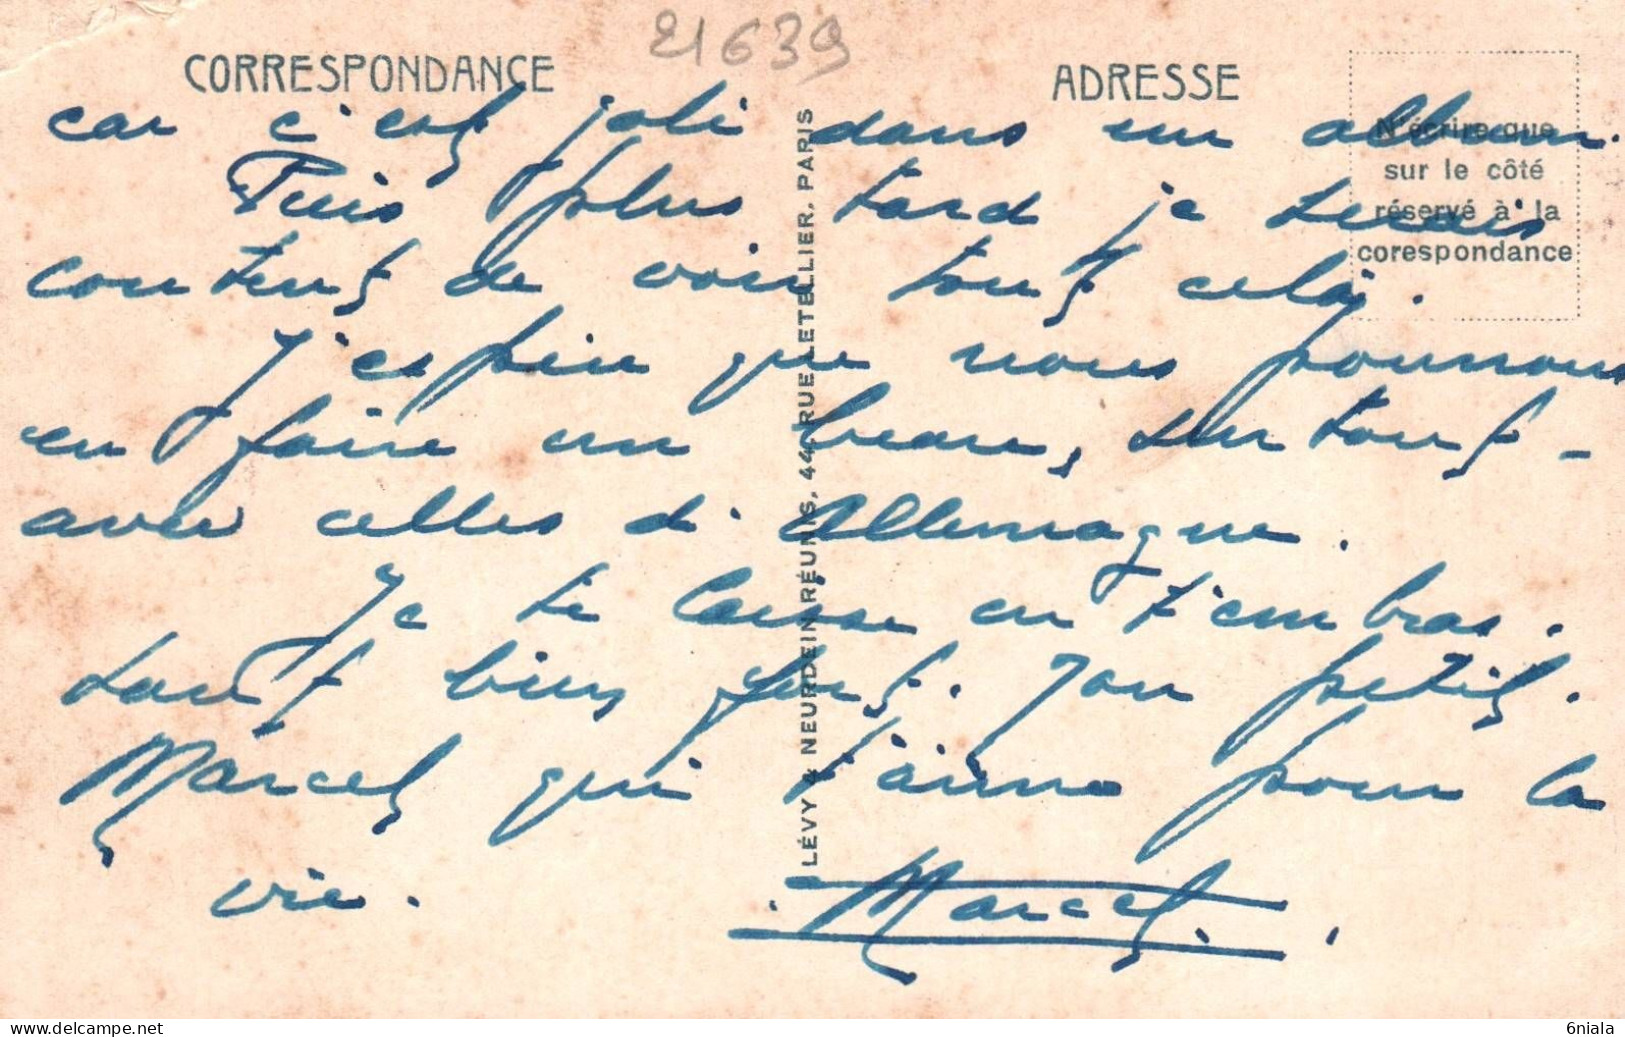 21639
CORRESPONDANCE
ADRESSE
N'écrire que
sur le côté
réservé à la
corespondance
car c'est joli dans un album.
Puis plus tard je serais
content de voir tout cela.
J'espère que nous pourrons
en faire un beau, surtout -
avec celles d'Allemagne.
Je te laisse en t'embras.
sant bien fort. Ton petit.
Marcel qui t'aime pour la
vie.
Marcel.
LÉVY & NEURDEIN RÉUNIS, 44, RUE LETELLIER, PARIS
6niala